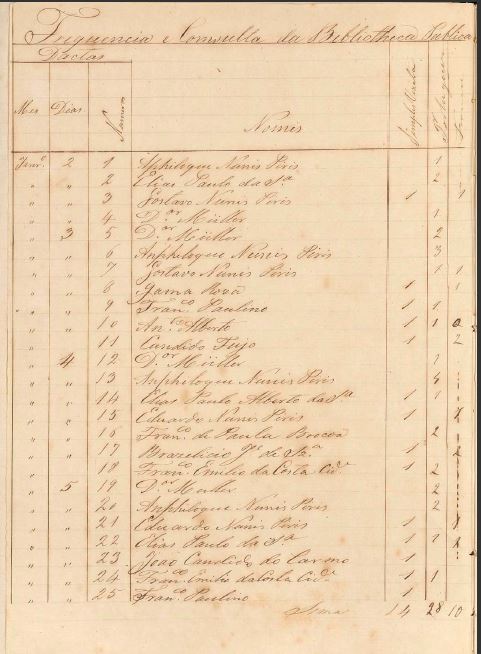 Frequencia e Consulta da Bibliotheca Publica
Dactas
Mes Dias Numero Nomes Simples Visita
Janr.o 2 1 Amphiloquo Nunes Pires 1
" " 2 Elias Paulo da S.a 2
" " 3 Gostavo Nunes Pires 1 1
" " 4 D.or Müller 1
" 3 5 D.or Müller 2
" " 6 Amphiloquo Nunes Pires 3
" " 7 Gostavo Nunes Pires 1 1
" " 8 Gama Roza 1 1
" " 9 Fran.co Paulino 1 1
" " 10 An.to Alberto 1 1 0
" " 11 Candido Feijo 1 2
" 4 12 D.or Müller 1
" " 13 Amphiloquo Nunes Pires 4
" " 14 Elias Paulo Alberto da S.a 1 1
" " 15 Eduardo Nunes Pires 1
" " 16 Fran.co de Paula 2
" " 17 de 1 2
" " 18 Fran.co Emilio da Costa Cid.e 1 2
" 5 19 D.or Muller 2
" " 20 Amphiloquo Nunes Pires 2
" " 21 Eduardo Nunes Pires 1
" " 22 Elias Paulo da S.a 1 1
" " 23 João Candido do Carmo 1
" " 24 Fran.co Emilio da Costa Cid.e 1 1
" " 25 Fran.co Paulino 1
Soma 14 28 10